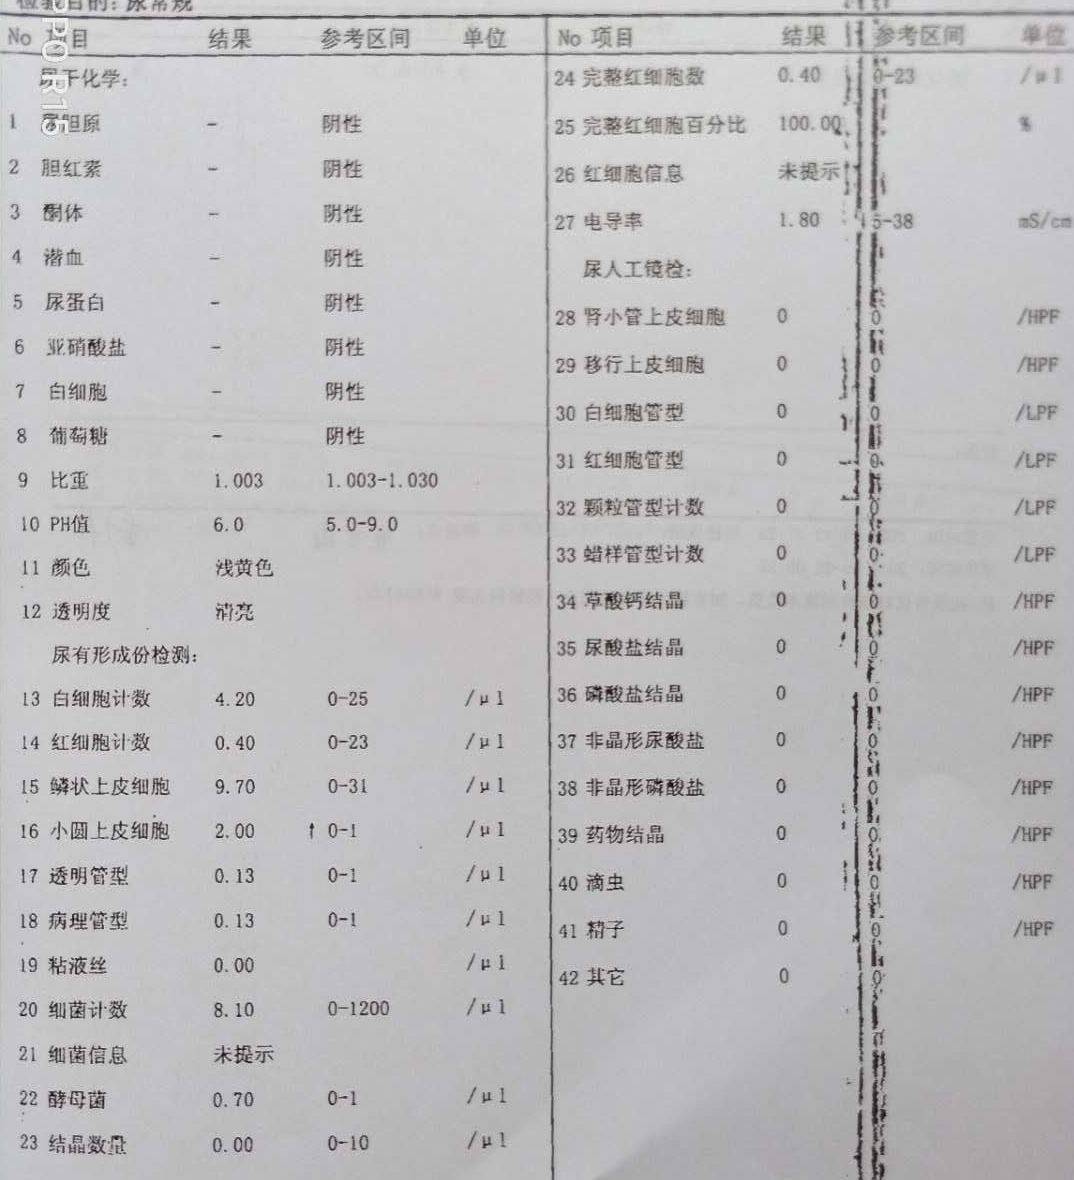 检验目的: 尿常规
No 项目 结果 参考区间 单位
尿干化学:
1 尿胆原 - 阴性
2 胆红素 - 阴性
3 酮体 - 阴性
4 潜血 - 阴性
5 尿蛋白 - 阴性
6 亚硝酸盐 - 阴性
7 白细胞 - 阴性
8 葡萄糖 - 阴性
9 比重 1.003 1.003-1.030
10 PH值 6.0 5.0-9.0
11 颜色 浅黄色
12 透明度 清亮
尿有形成份检测:
13 白细胞计数 4.20 0-25 /μl
14 红细胞计数 0.40 0-23 /μl
15 鳞状上皮细胞 9.70 0-31 /μl
16 小圆上皮细胞 2.00 ↑ 0-1 /μl
17 透明管型 0.13 0-1 /μl
18 病理管型 0.13 0-1 /μl
19 粘液丝 0.00 /μl
20 细菌计数 8.10 0-1200 /μl
21 细菌信息 未提示
22 酵母菌 0.70 0-1 /μl
23 结晶数量 0.00 0-10 /μl
No 项目 结果 参考区间 单位
24 完整红细胞数 0.40 0-23 /μl
25 完整红细胞百分比 100.00 %
26 红细胞信息 未提示
27 电导率 1.80 5-38 mS/cm
尿人工镜检:
28 肾小管上皮细胞 0 0 /HPF
29 移行上皮细胞 0 0 /HPF
30 白细胞管型 0 0 /LPF
31 红细胞管型 0 0 /LPF
32 颗粒管型计数 0 0 /LPF
33 蜡样管型计数 0 0 /LPF
34 草酸钙结晶 0 0 /HPF
35 尿酸盐结晶 0 0 /HPF
36 磷酸盐结晶 0 0 /HPF
37 非晶形尿酸盐 0 0 /HPF
38 非晶形磷酸盐 0 0 /HPF
39 药物结晶 0 0 /HPF
40 滴虫 0 0 /HPF
41 精子 0 0 /HPF
42 其它 0 0